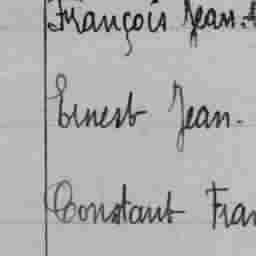 François Jean.
Ernest Jean.
Constant Fran